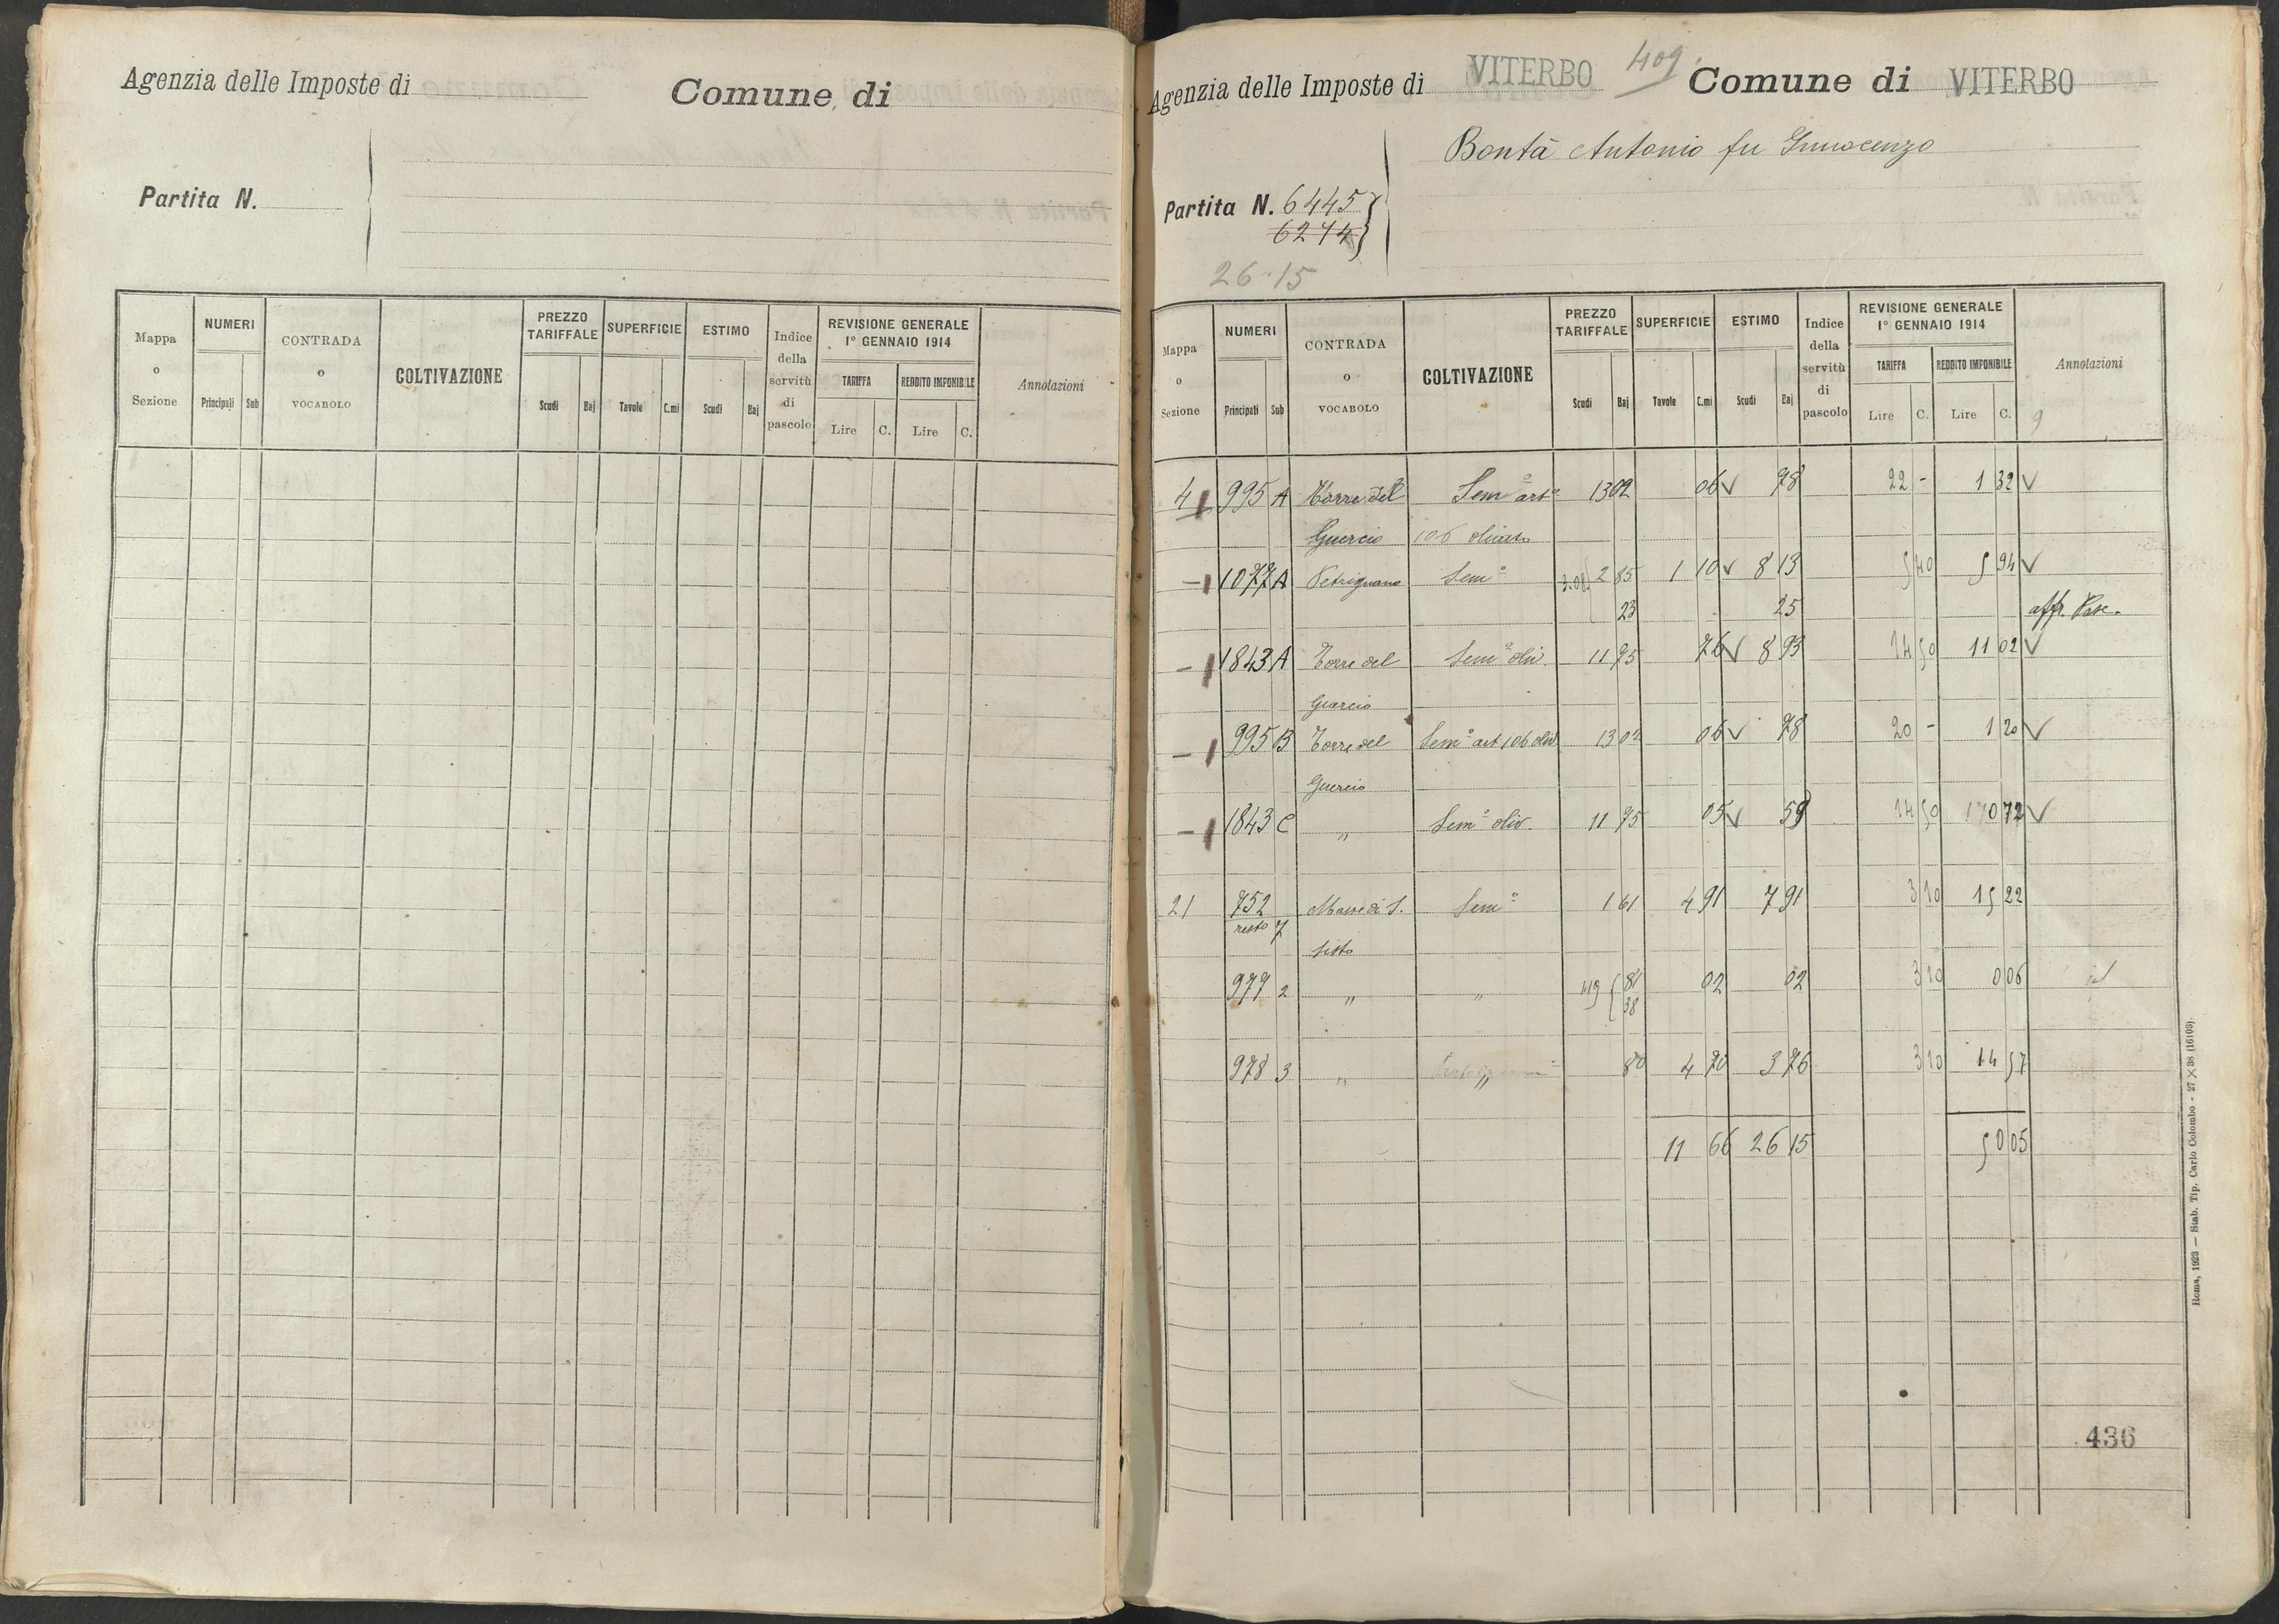 Agenzia delle Imposte di
Comune di
Partita N.
Mappa o Sezione | NUMERI Principali Sub | CONTRADA o VOCABOLO | COLTIVAZIONE | PREZZO TARIFFALE Scudi Baj | SUPERFICIE Tavole C.mi | ESTIMO Scudi Baj | Indice della servitù di pascolo | REVISIONE GENERALE 1° GENNAIO 1914 TARIFFA Lire C. REDDITO IMPONIBILE Lire C. | Annotazioni
Agenzia delle Imposte di VITERBO 409 Comune di VITERBO
Bontà Antonio fu Innocenzo
Partita N. 6445
6274
26.15
Mappa o Sezione | NUMERI Principali Sub | CONTRADA o VOCABOLO | COLTIVAZIONE | PREZZO TARIFFALE Scudi Baj | SUPERFICIE Tavole C.mi | ESTIMO Scudi Baj | Indice della servitù di pascolo | REVISIONE GENERALE 1° GENNAIO 1914 TARIFFA Lire C. REDDITO IMPONIBILE Lire C. | Annotazioni
9
4 995 A Torre del Semº artº 13 02 06 √ 78 22 - 1 32 √
Guercio 106 olivato
— 1077 A Petrignano Semº 3.08 2 85 1 10 √ 8 13 5 40 5 94 √
23 25 affr. Pasc.
— 1843 A Torre del Semº oliv. 11 75 76 √ 8 93 14 50 11 02 √
Guercio
— 995 B Torre del Semº art 106 oliv 13 02 06 √ 78 20 - 1 20 √
Guercio
— 1843 C " Semº oliv. 11 75 05 √ 59 14 50 0 72 √
21 752 Masse di S. Semº 1 61 4 91 7 91 3 10 15 22
resto 7
Sisto
977 2 " " 119 { 81 02 02 3 10 0 06 id
38
978 3 " " 80 4 70 3 76 3 10 14 57
11 66 26 15 50 05
436
Roma, 1923 — Stab. Tip. Carlo Colombo - 27 × 38 (16103).